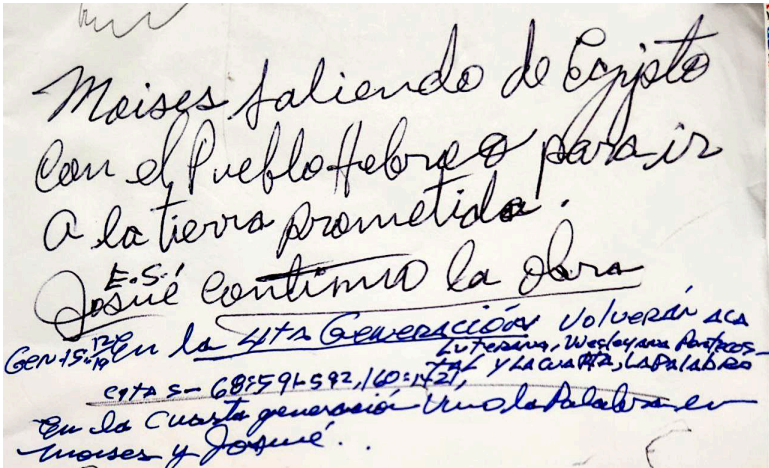 Moises saliendo de Egipto
Con el Pueblo Hebreo para ir
A la tierra prometida.
E.S.
Josué continuo la obra
Gen-15: En la 4ta Generación Volverán acá
Luterana, Wesleyana Pentecos-
TAL Y LA CUARTA, LA PALABRA
En la Cuarta generación Vino la Palabra en
Moises y Josué.